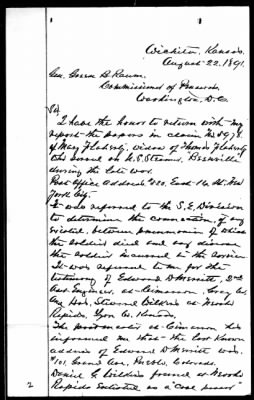 Wichita, Kansas.
August 22, 1891.
Gen. Green B. Raum.
Commissioner of Pensions,
Washington, D.C.
Sir,
I have the honor to return with my
report the papers in claim No 8978
of Mary Flaherty, widow of Thomas Flaherty
who served on U.S. Steamer,
during the late war.
Post Office address 420. East 16 St. New
York City.
It was referred to the S.E. Division
to determine the connection, if any
existed, between pneumonia of which
the soldier died and any disease
the soldier incurred in the service.
It was referred to me for the
testimony of Edward D Merritt, 2nd
Asst. Engineer, at Cimarron, Gray Co.
Kans. Steward Wilkins at
Rapids, Co. Kansas.
The postmaster at Cimarron has
informed me that the last known
address of Edward D Merritt was
Ave. Pueblo, Colorado.
Daniel C. Wilkins found at
Rapids enlisted as a "Coal
2